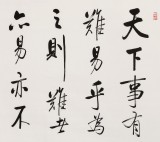 天下事有
難易乎為
之則難者
亦易矣不